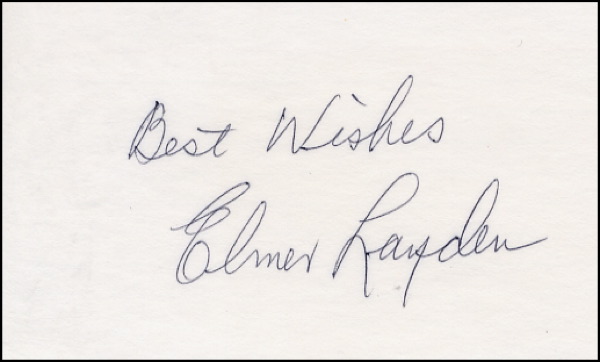 Best Wishes
Elmer Layden